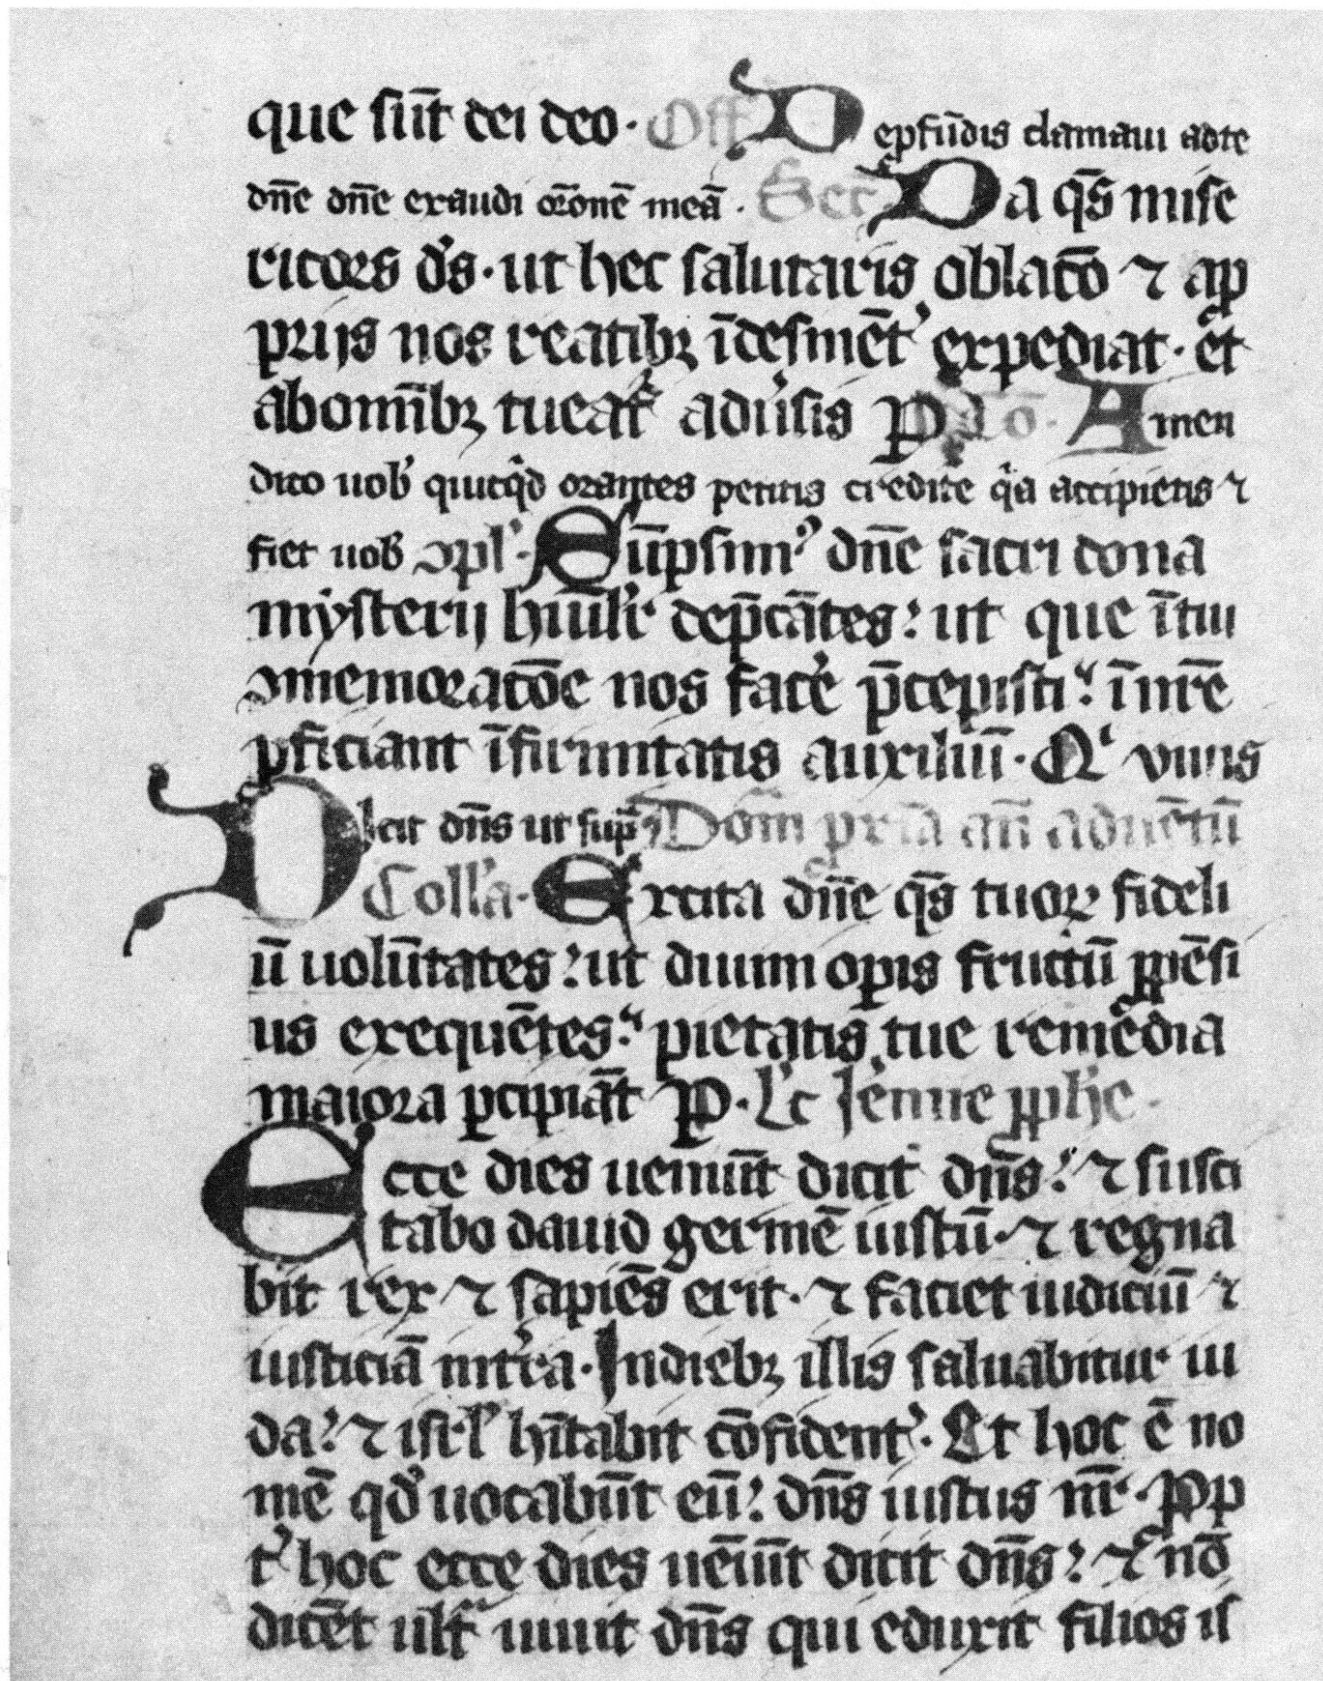 que sūt dei deo. Off De ꝓfūdis clamaui adte
dn̄e dn̄e exaudi or̄onē meā. Sec̄ Da qs̄ mise
ricors ds̓. ut hec salutaris oblatō ⁊ a ꝓ
prijs nos reatibꝫ īdesinēt᾽ expediat. et
abomībꝫ tueat᾽ adu᾽sis P 9̄co. Amen
dico uob᾽ quicqͥd orantes petitis credite qͥa accipietis ⁊
fiet uob᾽ ↄpl᾽. Sūpsim᾽ dn̄e sacri dona
mẏsterij hūil᾽r dep̄cātes: ut que ī tui
ↄmemoratōe nos fac᾽e p̄cepisti: ī nr̄e
ꝓficiant īfirmitatis auxiliū. Qͥ viuis
Dicit dn̄s ut sup̄ Dom̄ pria an̄ aduētū
Coll᾽a. Excita dn̄e qs̄ tuoꝝ fideli
ū uolūtates: ut diuini opis fructū ꝓpēsi
us exequētes: pietatis tue remedia
maiora ꝑcipiāt P. L᾽c Ie᾽mie ꝓph᾽e.
Ecce dies ueniūt dicit dn̄s: ⁊ susci
tabo dauid germē iustū. ⁊ regna
bit rex ⁊ sapiēs erit. ⁊ faciet iudiciū ⁊
iusticiā int᾽ra. Indiebꝫ illis saluabitur iu
da: ⁊ isr̄l᾽ hītabit cōfident᾽. Et hoc ē no
mē qd᾽ uocabūt eū: dn̄s iustus nr̄. Prop
t᾽ hoc ecce dies uēiūt dicit dn̄s: ⁊ nō
dicēt ult᾽ uiuit dn̄s qui eduxit filios is